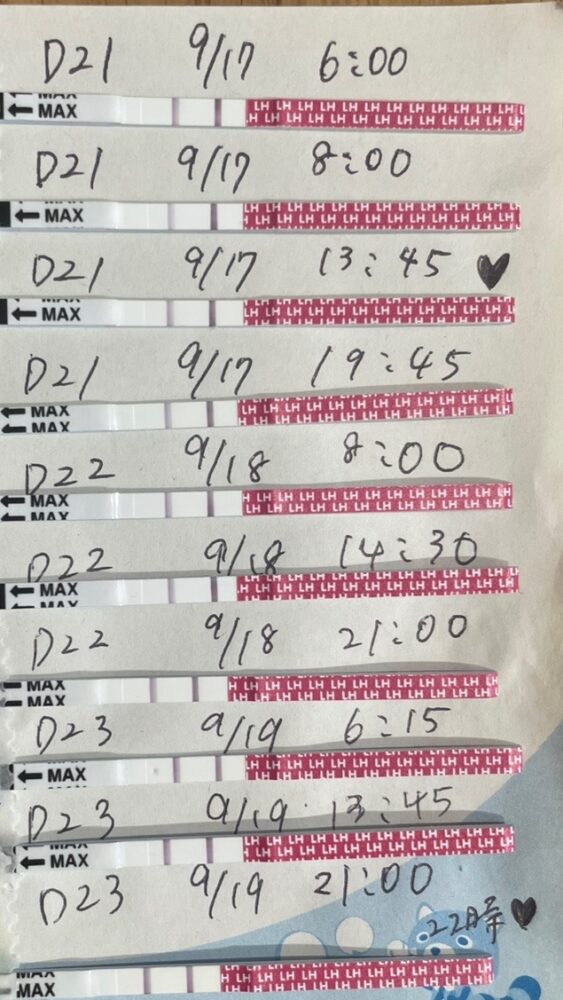 D21 9/17 6:00
← MAX LH LH LH LH LH LH LH LH LH LH LH LH
D21 9/17 8:00
← MAX LH LH LH LH LH LH LH LH LH LH LH LH
D21 9/17 13:45 ♥
← MAX LH LH LH LH LH LH LH LH LH LH LH LH
D21 9/17 19:45
← MAX LH LH LH LH LH LH LH LH LH LH LH LH
D22 9/18 8:00
← MAX LH LH LH LH LH LH LH LH LH LH LH LH
D22 9/18 14:30
← MAX LH LH LH LH LH LH LH LH LH LH LH LH
D22 9/18 21:00
← MAX LH LH LH LH LH LH LH LH LH LH LH LH
D23 9/19 6:15
← MAX LH LH LH LH LH LH LH LH LH LH LH LH
D23 9/19 13:45
← MAX LH LH LH LH LH LH LH LH LH LH LH LH
D23 9/19 21:00
22時 ♥
MAX LH LH LH LH LH LH LH LH LH LH LH LH